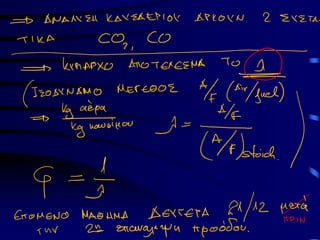 ⇒ ΑΝΑΛΥΣΗ ΚΑΥΣΑΕΡΙΟΥ ΑΡΚΟΥΝ 2 ΣΥΣΤΑ
ΤΙΚΑ CO₂, CO
⇒ ΚΥΡΙΑΡΧΟ ΑΠΟΤΕΛΕΣΜΑ ΤΟ λ
(ΙΣΟΔΥΝΑΜΟ ΜΕΓΕΘΟΣ A/F (Air/fuel)
⇒ kg αέρα / kg καυσίμου λ = (A/F) / (A/F)stoich. )
φ = 1/λ
ΕΠΟΜΕΝΟ ΜΑΘΗΜΑ ΔΕΥΤΕΡΑ 21/12 μετά
ΠΡΙΝ
την 2η επανάληψη προόδου.